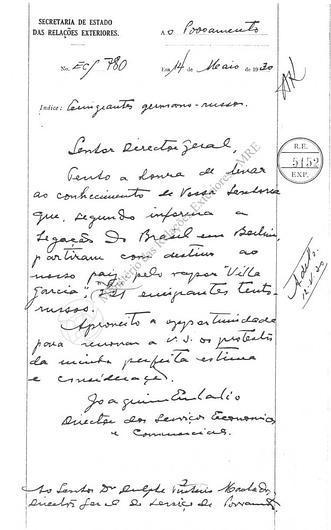 SECRETARIA DE ESTADO
DAS RELAÇÕES EXTERIORES.
Ao Povoamento
No. EC/ 780
Em 14 de Maio de 1930
Indice: Emigrantes germano-russos.
Senhor Director Geral,
R.E.
5152
EXP.
Tenho a honra de levar
ao conhecimento de Vossa Senhoria
que, segundo informa a
Legação do Brasil em Berlim,
partiram com destino ao
nosso paiz pelo vapor "Villa
Garcia" emigrantes teuto-
russos.
Aproveito a opportunidade
para renovar a V.S. os protestos
da minha perfeita estima
e consideração.
Joaquim Eulalio
Director dos Serviços Economicos
e Commerciaes.
Ao Senhor Dr Dulphe Pinheiro Machado,
Director Geral do Serviço de Povoamento
Ministério das Relações Exteriores - MRE